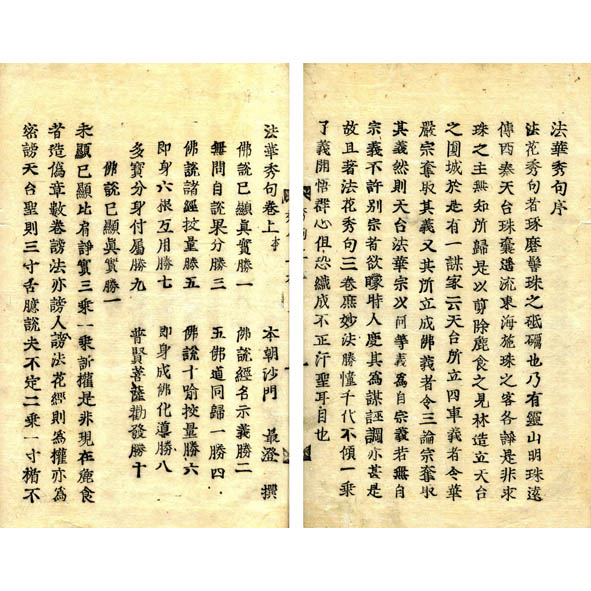 法華秀句序
法花秀句者琢磨髻珠之砥礪也乃有靈山明珠遠
傳西秦天台珠嚢遥流東海施珠之客各諍是非求
珠之主無知所歸是以剪除麁食之見林造立天台
之圍城於是有一謀家云天台所立四車義者令華
嚴宗奪取其義又其所立成佛義者令三論宗奪取
其義然則天台法華宗以何等義爲自宗義若無自
宗義不許別宗者欲曚時人鹿其爲謀誣調亦甚是
故且著法花秀句三卷庶妙法勝幢千代不傾一乗
了義開悟群心但恐織成不正汙聖耳目也
法華秀句卷上本
本朝沙門 最澄 撰
佛說已顯眞實勝一 佛說經名示義勝二
無問自說果分勝三 五佛道同歸一勝四
佛說諸經挍量勝五 佛說十喻挍量勝六
即身六根互用勝七 即身成佛化導勝八
多寶分身付屬勝九 普賢菩薩勸發勝十
佛說已顯眞實勝一
未顯已顯比肩諍實三乗一乗訴權是非現在麁食
者造偽章數卷謗法亦謗人謗法花經則爲權亦爲
密謗天台聖則三寸舌臆說夫不定二乗一寸楯不